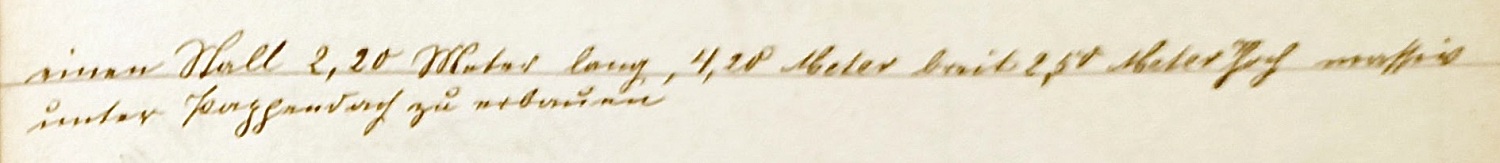 einen Stall 2,20 Meter lang, 4,20 Meter breit 2,50 Meter Hoch massiv
unter Pappendach zu erbauen